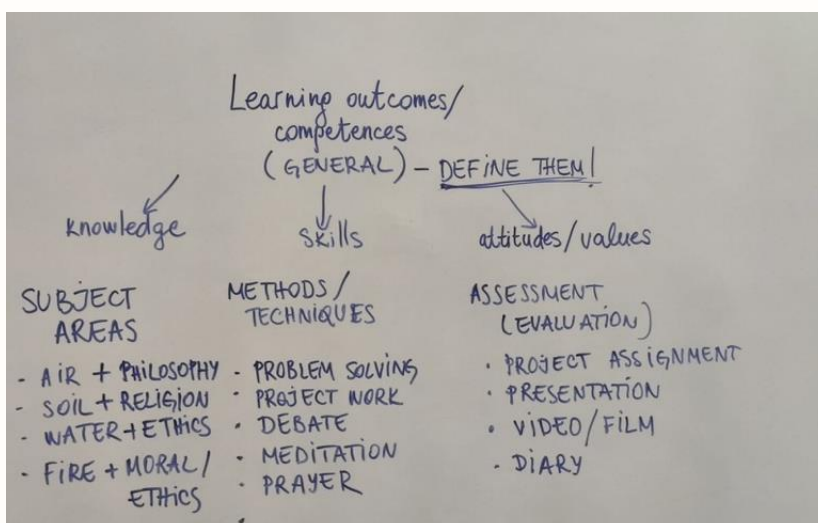 Learning outcomes/
competences
(GENERAL) - DEFINE THEM!
knowledge
skills
attitudes/values
SUBJECT
AREAS
- AIR + PHILOSOPHY
- SOIL + RELIGION
- WATER + ETHICS
- FIRE + MORAL/
ETHICS
METHODS/
TECHNIQUES
- PROBLEM SOLVING
- PROJECT WORK
- DEBATE
- MEDITATION
- PRAYER
ASSESSMENT
(EVALUATION)
- PROJECT ASSIGNMENT
- PRESENTATION
- VIDEO/FILM
- DIARY